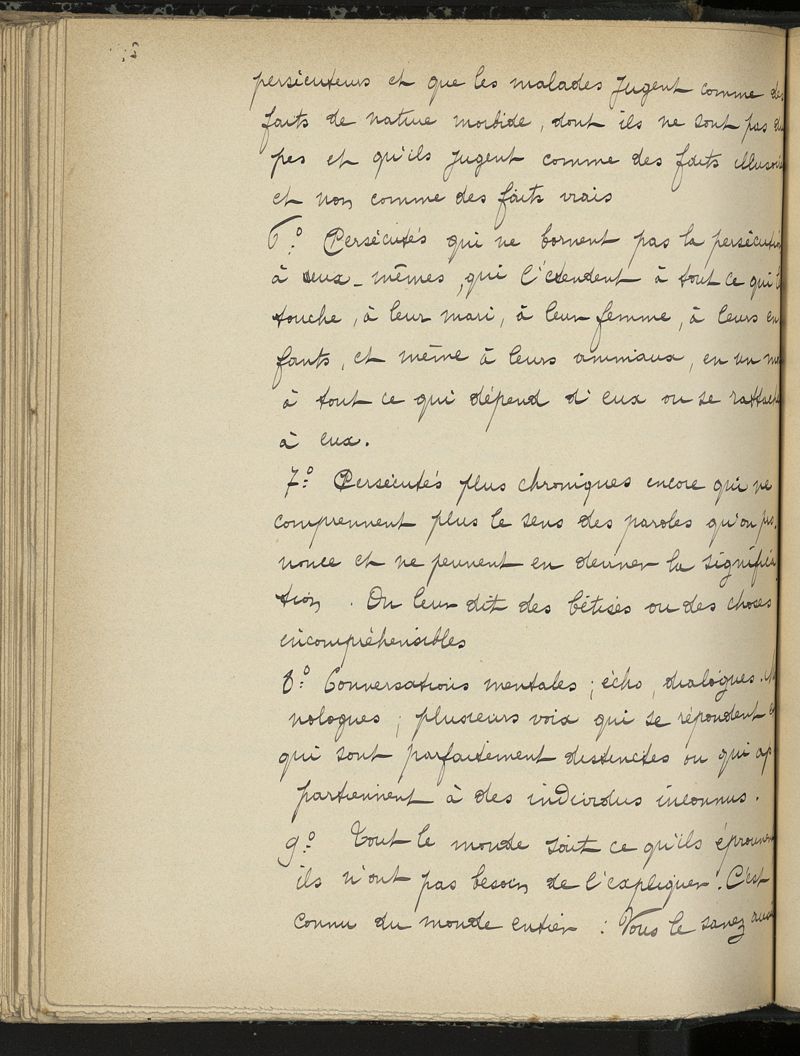 persécuteurs et que les malades jugent comme des
faits de nature morbide, dont ils ne sont pas du
pes et qu'ils jugent comme des faits illusoires
et non comme des faits vrais
6.° Persécutés qui ne bornent pas la persécution
à eux-mêmes, qui l'étendent à tout ce qui l
touche, à leur mari, à leur femme, à leurs en
fants, et même à leurs animaux, en un mo
à tout ce qui dépend d'eux ou se rattache
à eux.
7.° Persécutés plus chroniques encore qui ne
comprennent plus le sens des paroles qu'on pro
nonce et ne peuvent en donner la significa
tion. On leur dit des bêtises ou des choses
incompréhensibles
8.° Conversations mentales ; écho, dialogues.
nologues ; plusieurs voix qui se répondent
qui sont parfaitement distinctes ou qui ap
partiennent à des individus inconnus.
9.° Tout le monde sait ce qu'ils éprouvent
ils n'ont pas besoin de l'expliquer. C'est
connu du monde entier : Vous le savez aussi